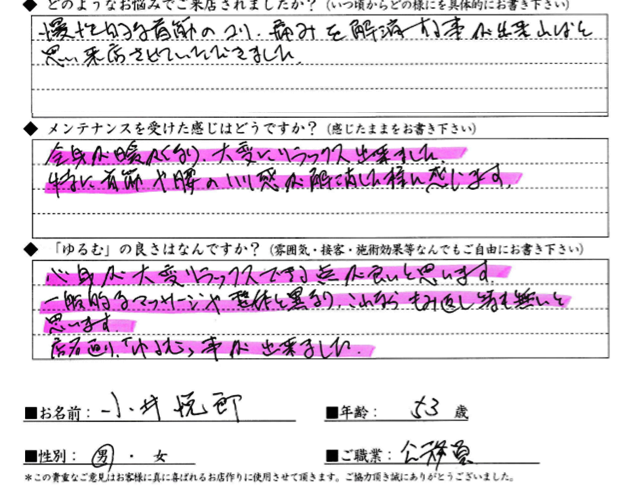 ◆ どのようなお悩みでご来店されましたか？(いつ頃からどの様にを具体的にお書き下さい)
慢性的な首筋のコリ、痛みを解消する事が出来ればと
思い来店させていただきました。
◆ メンテナンスを受けた感じはどうですか？(感じたままをお書き下さい)
全身が暖かくなり、大変にリラックス出来ました。
特に首筋や腰のコリ感が解消した様に感じます。
◆ 「ゆるむ」の良さはなんですか？(雰囲気・接客・施術効果等なんでもご自由にお書き下さい)
心身が大変リラックスできる点が良いと思います。
一般的なマッサージや整体と異なり、もみ返し等も無いと
思います。
店名通り、「ゆるむ」事が出来ました。
■お名前：小井悦郎 ■年齢：53歳
■性別：男・女 ■ご職業：公務員
*この貴重なご意見はお客様に真に喜ばれるお店作りに使用させて頂きます。ご協力頂き誠にありがとうございました。